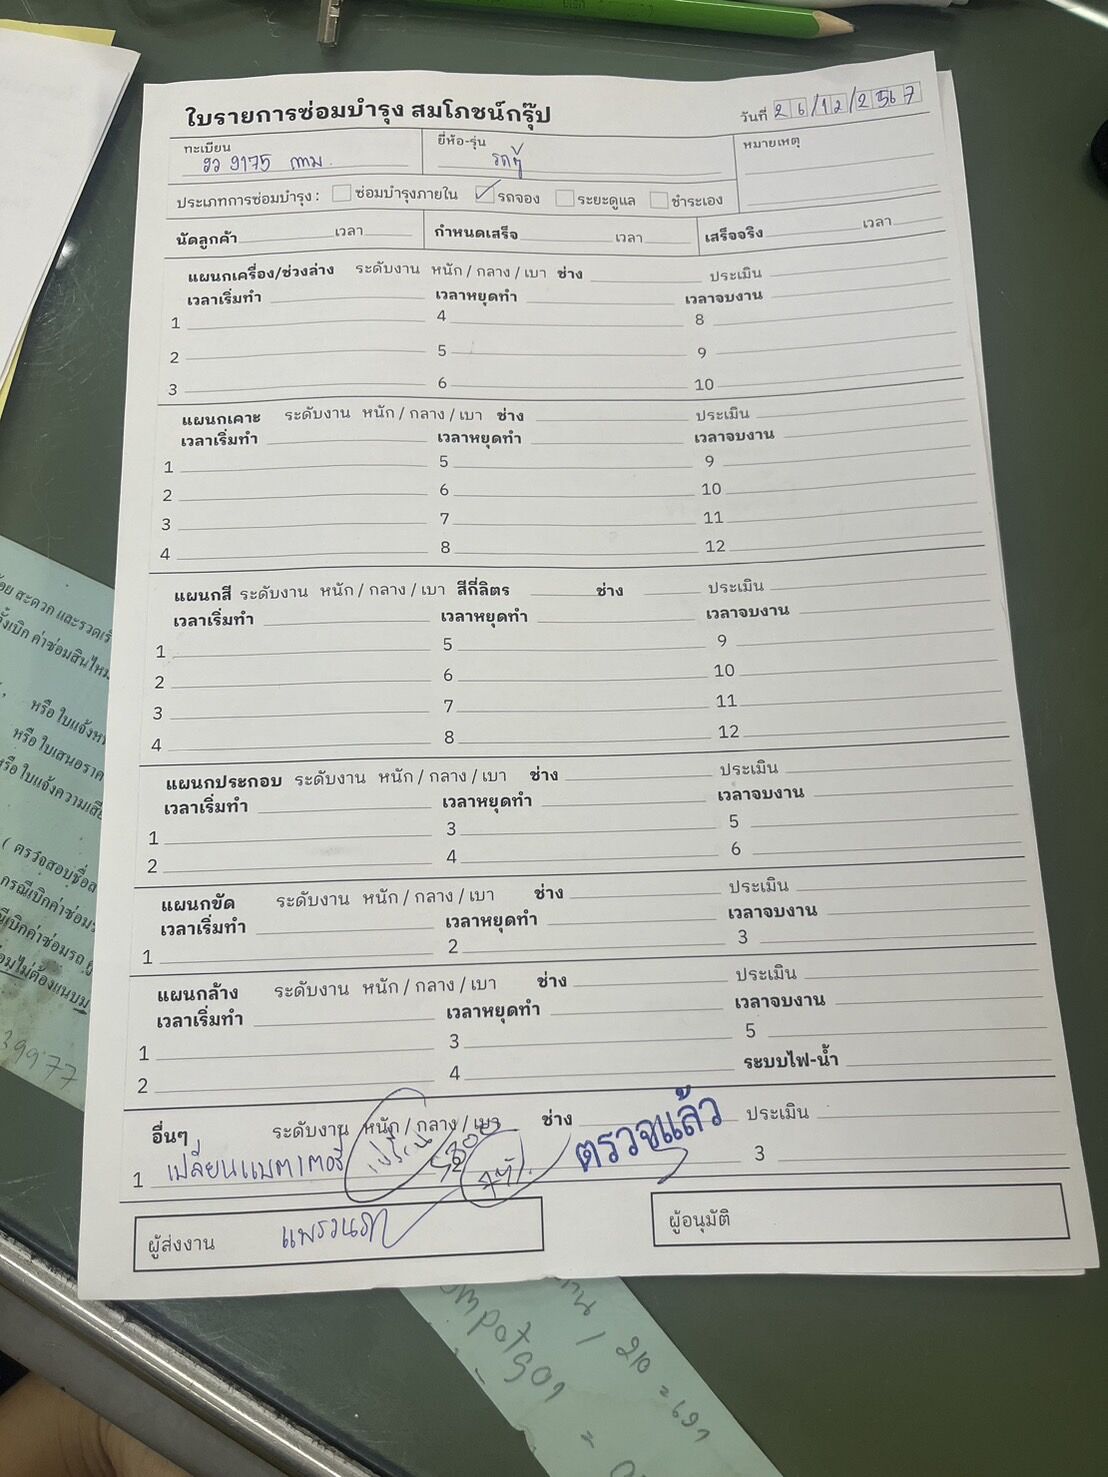 ใบรายการซ่อมบำรุง สมโภชน์กรุ๊ป
วันที่ 26/12/2567
ทะเบียน
ยี่ห้อ-รุ่น
หมายเหตุ
9175 กทม.
รถตู้
ประเภทการซ่อมบำรุง : ซ่อมบำรุงภายใน รถจอง ระยะดูแล ชำระเอง
นัดลูกค้า เวลา กำหนดเสร็จ เวลา เสร็จจริง เวลา
แผนกเครื่อง/ช่วงล่าง ระดับงาน หนัก / กลาง / เบา ช่าง ประเมิน
เวลาเริ่มทำ เวลาหยุดทำ เวลาจบงาน
1 4 8
2 5 9
3 6 10
แผนกเคาะ ระดับงาน หนัก / กลาง / เบา ช่าง ประเมิน
เวลาเริ่มทำ เวลาหยุดทำ เวลาจบงาน
1 5 9
2 6 10
3 7 11
4 8 12
แผนกสี ระดับงาน หนัก / กลาง / เบา สีกี่ลิตร ช่าง ประเมิน
เวลาเริ่มทำ เวลาหยุดทำ เวลาจบงาน
1 5 9
2 6 10
3 7 11
4 8 12
แผนกประกอบ ระดับงาน หนัก / กลาง / เบา ช่าง ประเมิน
เวลาเริ่มทำ เวลาหยุดทำ เวลาจบงาน
1 3 5
2 4 6
แผนกขัด ระดับงาน หนัก / กลาง / เบา ช่าง ประเมิน
เวลาเริ่มทำ เวลาหยุดทำ เวลาจบงาน
1 2 3
แผนกล้าง ระดับงาน หนัก / กลาง / เบา ช่าง ประเมิน
เวลาเริ่มทำ เวลาหยุดทำ เวลาจบงาน
1 3 5
2 4 ระบบไฟ-น้ำ
อื่นๆ ระดับงาน หนัก / กลาง / เบา ช่าง ประเมิน
1 เปลี่ยนแบตเตอรี่ ตรวจแล้ว 3
ผู้ส่งงาน แพรวนภา
ผู้อนุมัติ
สะดวก และรวดเร็
หรือ ใบแจ้งห
หรือ ใบเสนอราค
หรือ ใบแจ้งความเสีย
( ตรวจสอบชื่อ
กรณีเบิกค่าซ่อม
เบิกค่าซ่อมรถ
ไม่ต้องแนบ
39977
210 = 697